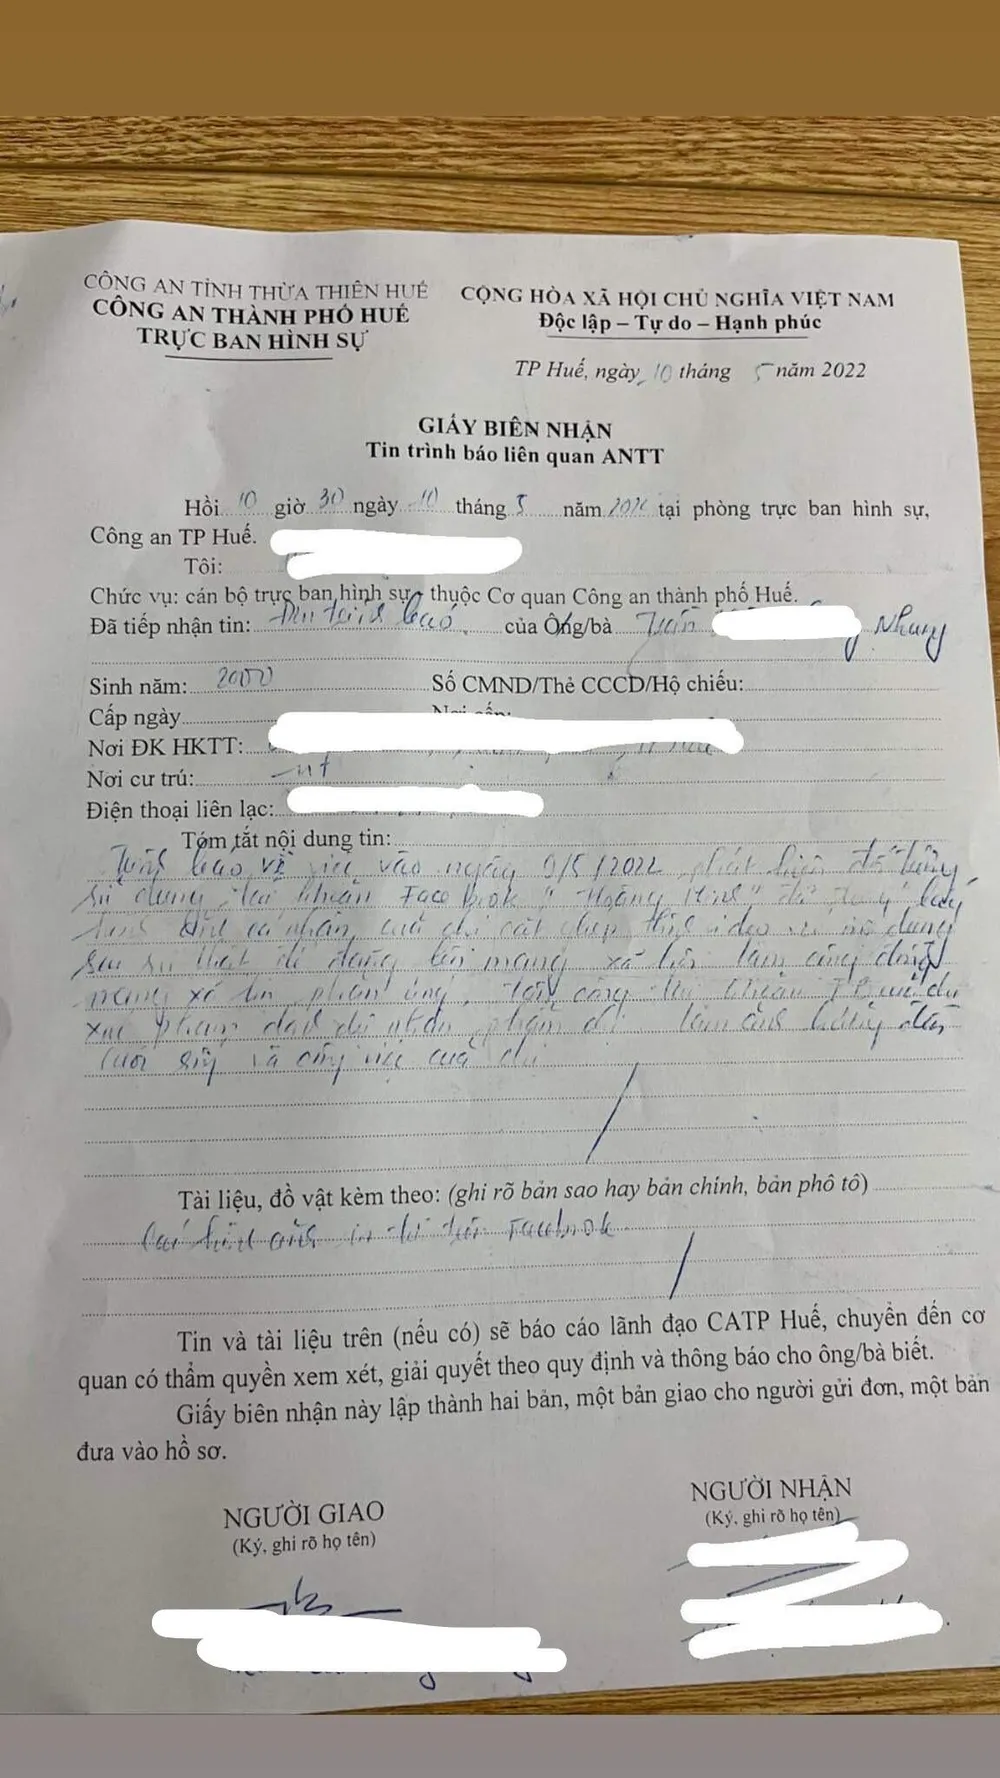 CÔNG AN TỈNH THỪA THIÊN HUẾ
CÔNG AN THÀNH PHỐ HUẾ
TRỰC BAN HÌNH SỰ
CỘNG HÒA XÃ HỘI CHỦ NGHĨA VIỆT NAM
Độc lập – Tự do – Hạnh phúc
TP Huế, ngày 10 tháng 5 năm 2022
GIẤY BIÊN NHẬN
Tin trình báo liên quan ANTT
Hồi 10 giờ 30 ngày 10 tháng 5 năm 2022 tại phòng trực ban hình sự,
Công an TP Huế.
Tôi:
Chức vụ: cán bộ trực ban hình sự – thuộc Cơ quan Công an thành phố Huế.
Đã tiếp nhận tin: Đơn trình báo của Ông/bà Trần Nhung
Sinh năm: 2000 Số CMND/Thẻ CCCD/Hộ chiếu:
Cấp ngày
Nơi ĐK HKTT:
Nơi cư trú: nt
Điện thoại liên lạc:
Tóm tắt nội dung tin:
Trình báo về việc vào ngày 9/5/2022 phát hiện đối tượng
sử dụng tài khoản FaceBook "Hoàng Minh" đã lấy
hình ảnh cá nhân của chị cắt ghép thành video có nội dung
sai sự thật để đăng lên mạng xã hội làm cộng đồng
mạng xã hội phản ứng, tấn công
xúc phạm danh dự nhân phẩm chị làm ảnh hưởng đến
cuộc sống và công việc của chị
Tài liệu, đồ vật kèm theo: (ghi rõ bản sao hay bản chính, bản phô tô)
hình ảnh in từ Facebook
Tin và tài liệu trên (nếu có) sẽ báo cáo lãnh đạo CATP Huế, chuyển đến cơ
quan có thẩm quyền xem xét, giải quyết theo quy định và thông báo cho ông/bà biết.
Giấy biên nhận này lập thành hai bản, một bản giao cho người gửi đơn, một bản
đưa vào hồ sơ.
NGƯỜI GIAO
(Ký, ghi rõ họ tên)
NGƯỜI NHẬN
(Ký, ghi rõ họ tên)